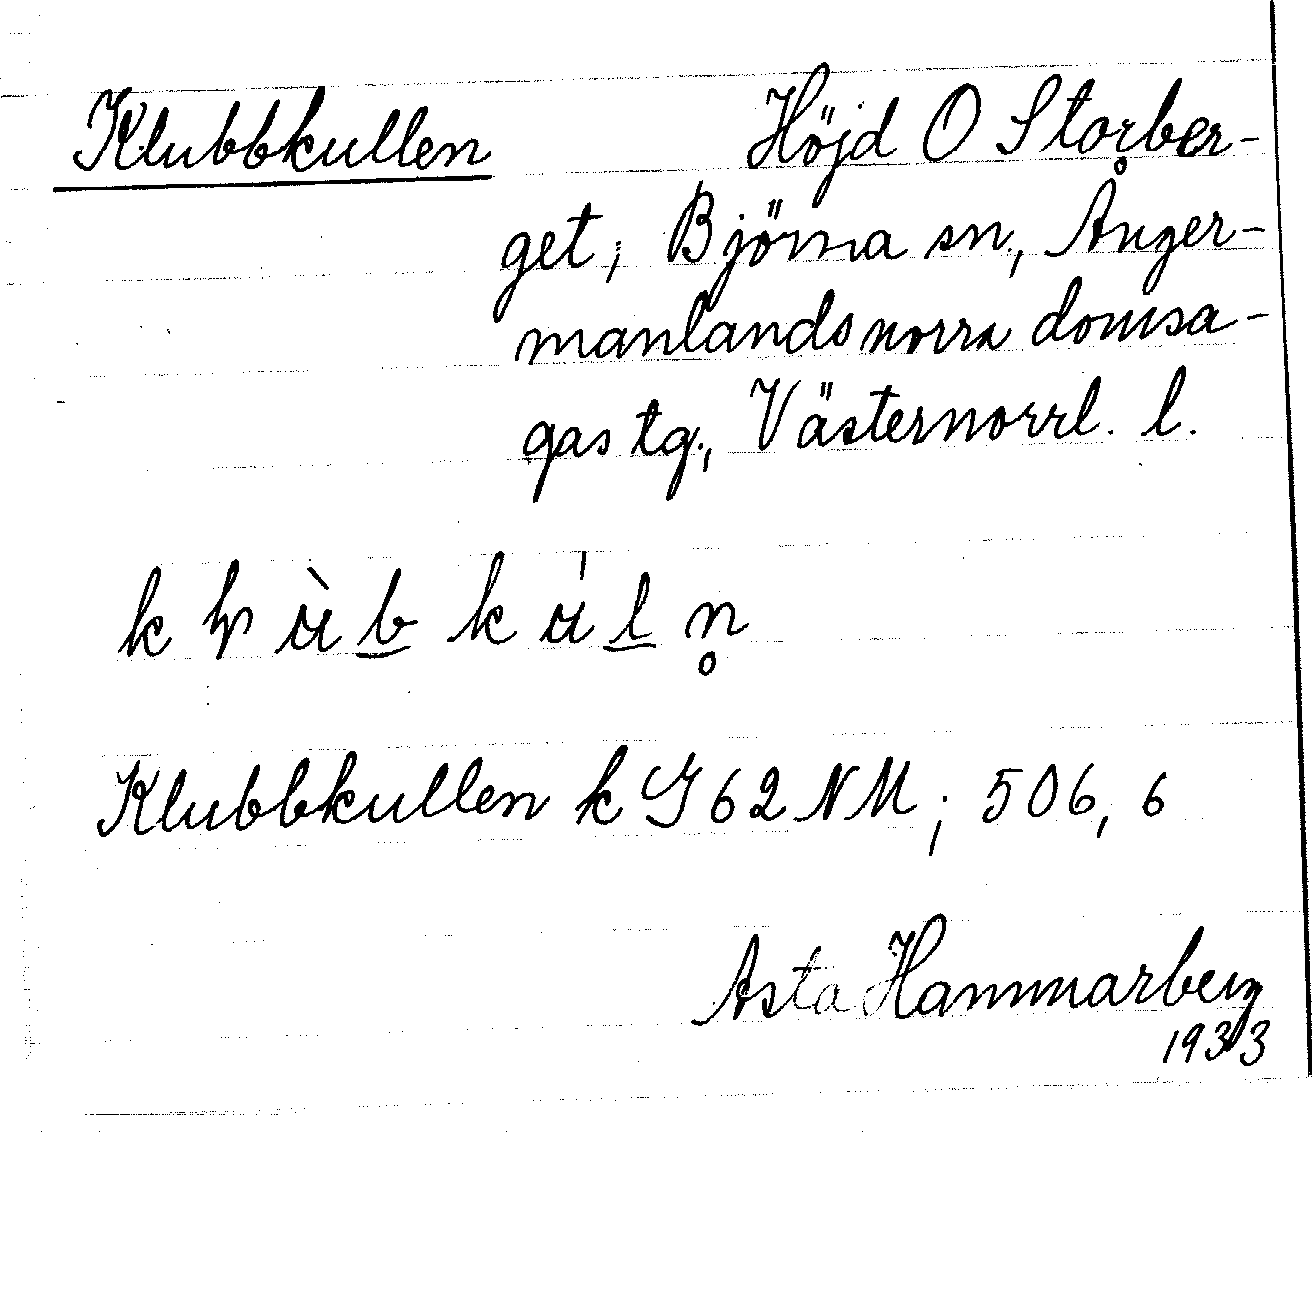 Klubbkullen Höjd O Storber-
get; Björna sn, Ånger-
manlands norra domsa-
gas tg., Västernorrl. l.
Klubbkullen k G 62 NM; 506, 6
Asta Hammarberg
1933